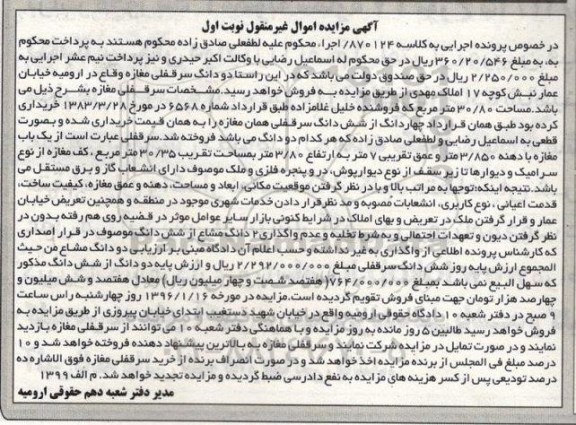 آگهی مزایده اموال غیرمنقول نوبت اول
در خصوص پرونده اجرایی به کلاسه ۸۷۰۱۲۴/ اجرا، محکوم علیه لطفعلی صادق زاده محکوم هستند به پرداخت محکوم
به، به مبلغ ۳۶۰/۲۰/۵۴۶ ریال در حق محکوم له اسماعیل رضایی با وکالت اکبر حیدری و نیز پرداخت نیم عشر اجرایی به
مبلغ ۲/۲۵۰/۰۰۰ ریال در حق صندوق دولت می باشد که در این راستا دو دانگ سرقفلی مغازه وقاع در ارومیه خیابان
عمار نبش کوچه ۱۷ املاک مهدی از طریق مزایده به فروش خواهد رسید.مشخصات سرقفلی مغازه بشرح ذیل می
باشد. مساحت ۳۰/۸۰ متر مربع که فروشنده خلیل غلامزاده طبق قرارداد شماره ۶۵۶۸ در مورخ ۱۳۸۳/۳/۲۸ خریداری
کرده بود طبق همان قرارداد چهاردانگ از شش دانگ سرقفلی همان مغازه را به همان قیمت خریداری شده و بصورت
قطعی به اسماعیل رضایی و لطفعلی صادق زاده که هر کدام دو دانگ می باشد فروخته شد.سرقفلی عبارت است از یک باب
مغازه با دهنه ۳/۸۵۰ متر و عمق تقریبی ۷ متر به ارتفاع ۳/۸۰ متر بمساحت تقریب ۳۰/۳۵ متر مربع ، کف مغازه از نوع
سرامیک و دیوارها تا زیر سقف از نوع دیوارپوش، در و پنجره فلزی و ملک موصوف دارای انشعاب گاز و برق مستقل می
باشد.نتیجه اینکه:توجها به مراتب بالا و با در نظر گرفتن موقعیت مکانی، ابعاد و مساحت، دهنه و عمق مغازه، کیفیت ساخت،
قدمت اعیانی ، نوع کاربری، انشعابات مصوبه و مد نظر قرار دادن خدمات شهری موجود در منطقه و همچنین تعریض خیابان
عمار و قرار گرفتن ملک در تعریض و بهای املاک در شرایط کنونی بازار سایر عوامل موثر در قضیه روی هم رفته بدون در
نظر گرفتن دیون و تعهدات احتمالی و به شرط تخلیه و عدم واگذاری ۲ دانگ مشاع از شش دانگ موصوف در قرار اصداری
که کارشناس پرونده اطلاعی از واگذاری به غیر نداشته و حسب اعلام آن دادگاه مبنی بر ارزیابی دو دانگ مشاع من حیث
المجموع ارزش پایه روز شش دانگ سرقفلی مبلغ ۲/۲۹۲/۰۰۰/۰۰۰ ریال و ارزش پایه دو دانگ از شش دانگ مذکور
که سهل البیع نمی باشد بمبلغ ۷۶۴/۰۰۰/۰۰۰( هفتصد شصت و چهار میلیون ریال) معادل هفتصد و شش میلیون و
چهارصد هزار تومان جهت مبنای فروش تقویم گردیده است.مزایده در مورخه ۱۳۹۶/۱/۱۶ روز چهارشنبه راس ساعت
۹ صبح در دفتر شعبه ۱۰ دادگاه حقوقی ارومیه واقع در خیابان شهید دستغیب ابتدای خیابان پیروزی از طریق مزایده به
فروش خواهد رسید طالبین ۵ روز مانده به روز مزایده و با هماهنگی دفتر شعبه ۱۰ می توانند از سرقفلی مغازه بازدید
نمایند و در صورت تمایل در مزایده شرکت نمایند و سرقفلی مغازه به بالاترین پیشنهاد دهنده فروخته خواهد شد و ۱۰
درصد مبلغ فی المجلس از برنده مزایده اخذ خواهد شد و در صورت انصراف برنده از خرید سرقفلی مغازه فوق الاشاره ده
درصد تودیعی پس از کسر هزینه های مزایده به نفع دادرسی ضبط گردیده و مزایده تجدید خواهد شد. م الف ۱۳۹۹
مدیر دفتر شعبه دهم حقوقی ارومیه